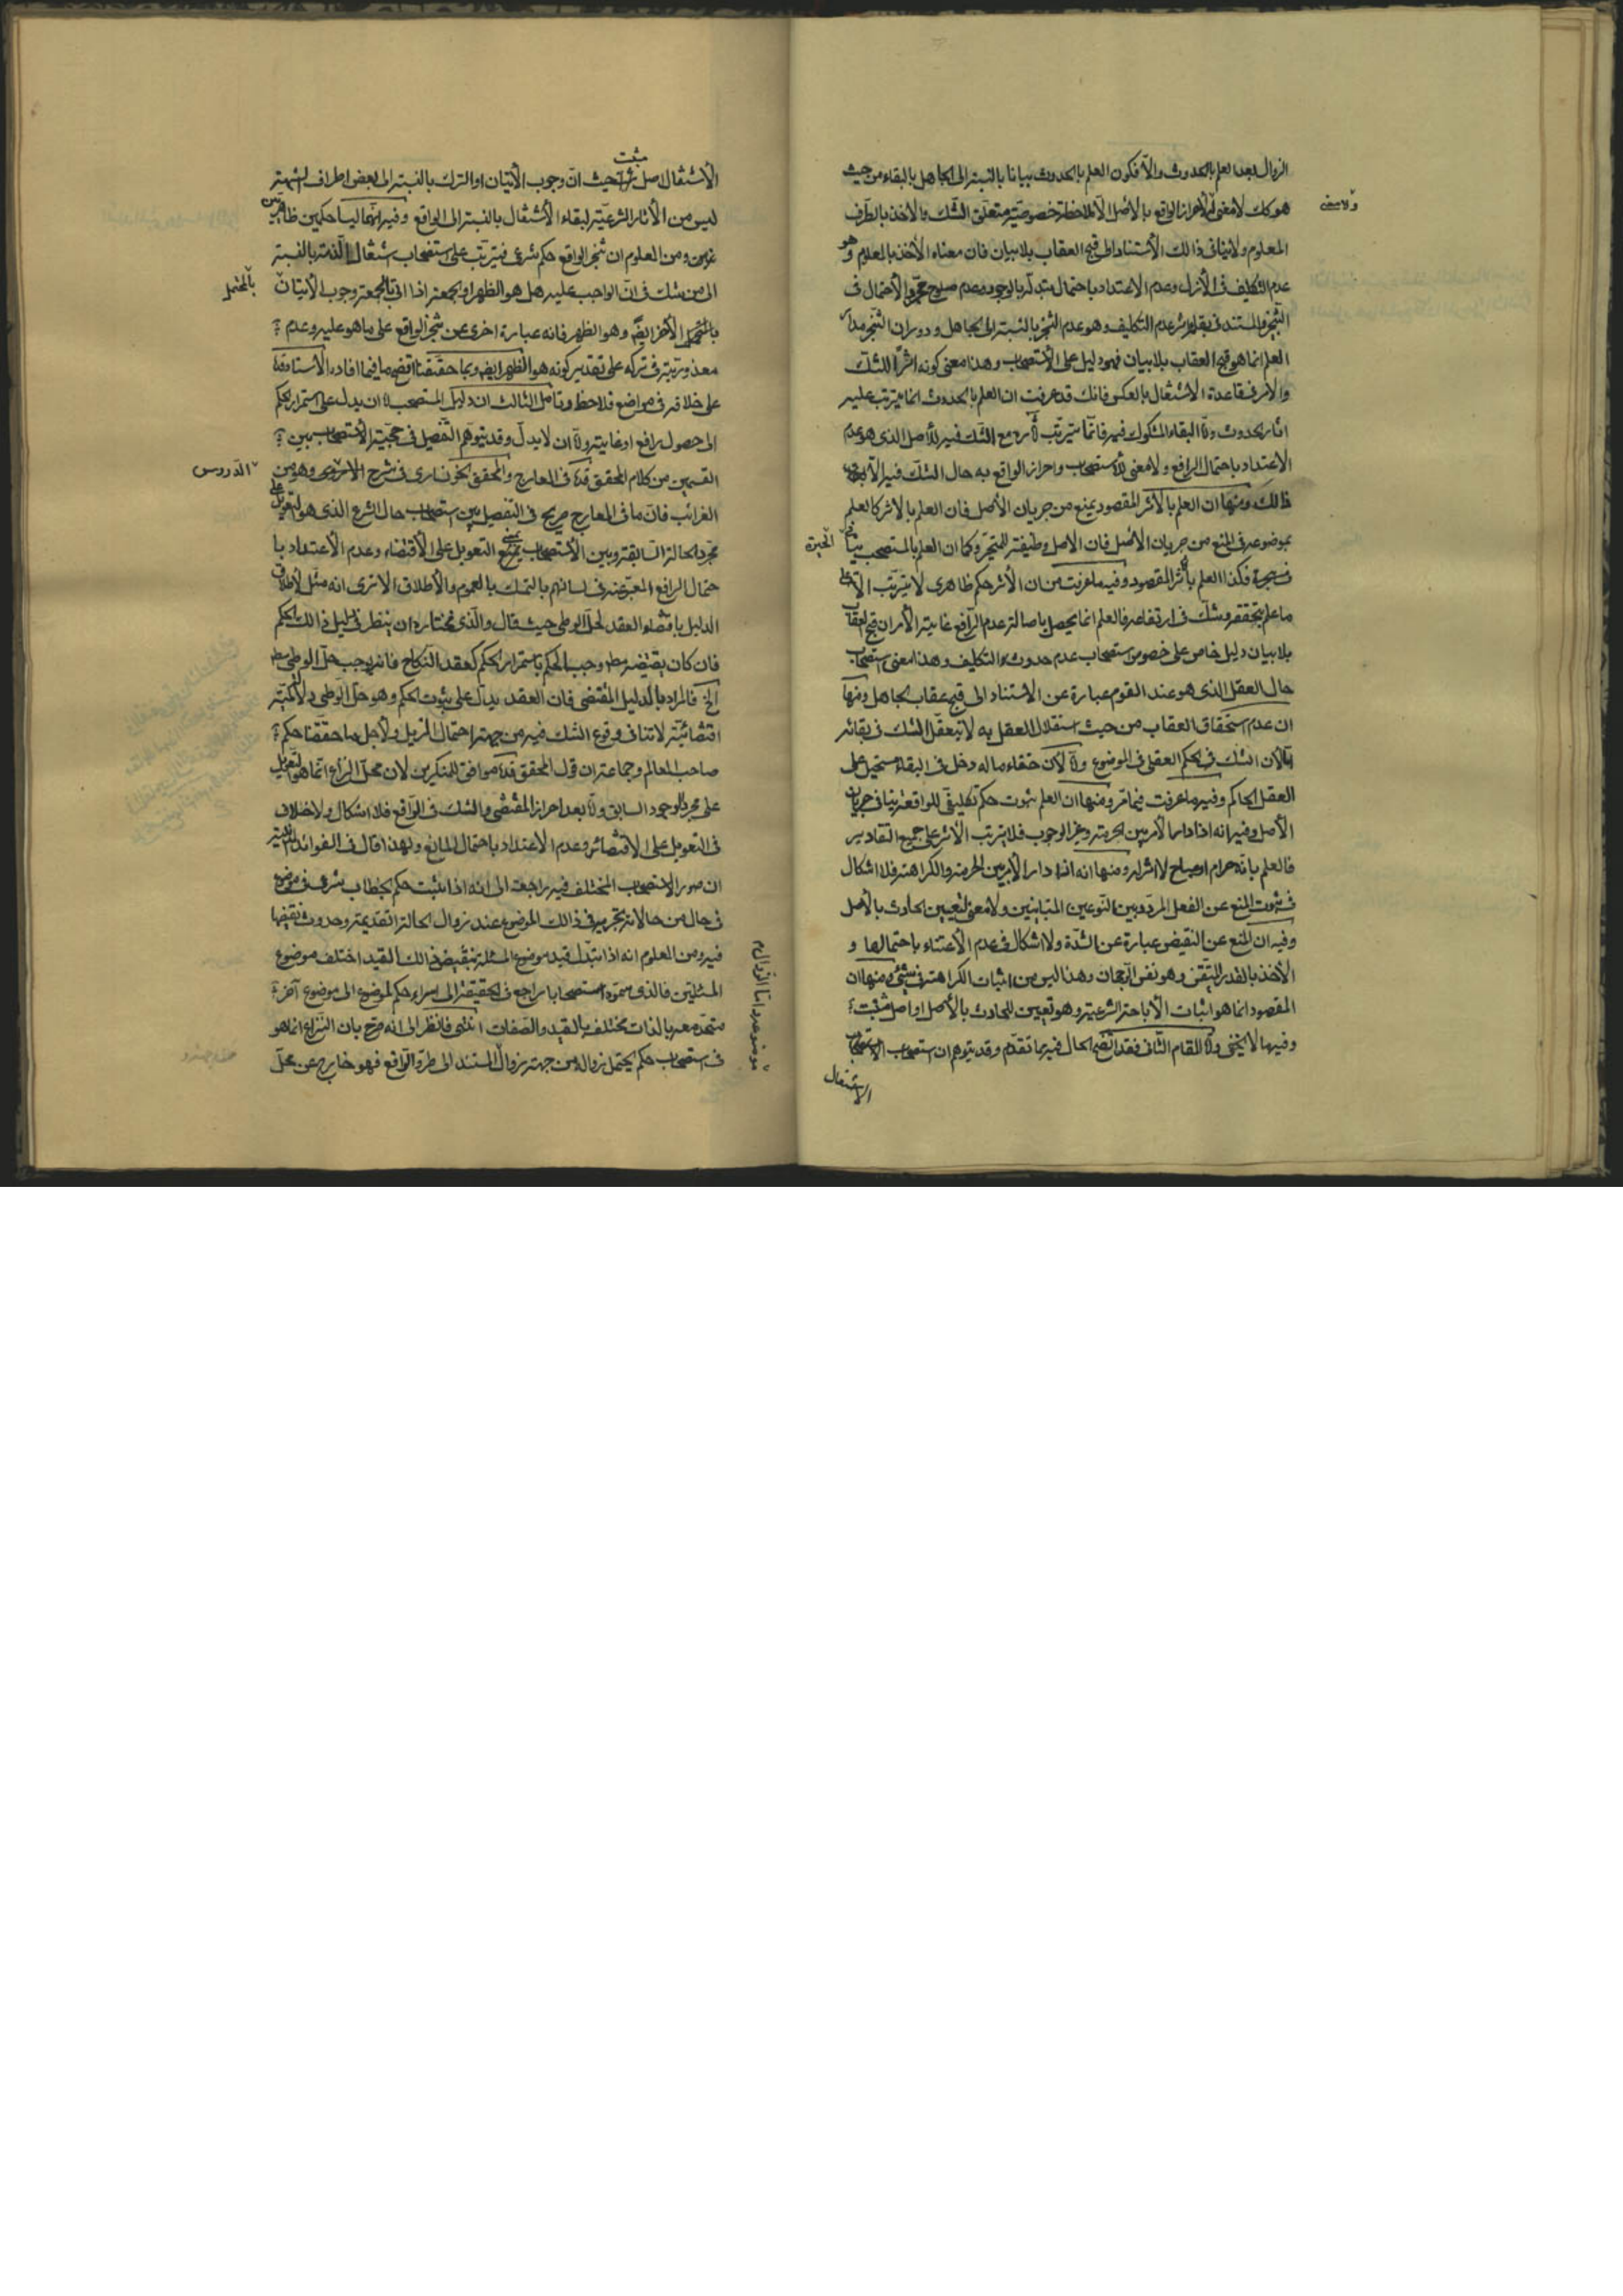 الزوال بعد العلم بالحدوث والا فكون العلم بالحدوث بيانا بالنسبة الى الجاهل بالبقاء من حيث
هو كك لا معنى له لاحراز الواقع بالاصل الا بملاحظة خصوصية متعلق الشك والاخذ بالطرف
المعلوم ولا ينافى ذالك الاستناد الى قبح العقاب بلا بيان فان معناه الاخذ بالمعلوم وهو
عدم التكليف فى الازل وعدم الاعتداد باحتمال تبدله بالوجود وعدم صلوح مجرد الاحتمال فى
التنجز فالمستند فى بقاء اثر عدم التكليف وهو عدم التنجز بالنسبة الى الجاهل ودوران التنجز مدار
العلم انما هو قبح العقاب بلا بيان فهو دليل على الاستصحاب وهذا معنى كونه اثرا للشك
والامر فى قاعدة الاشتغال بالعكس فانك قد عرفت ان العلم بالحدوث انما يترتب عليه
اثار الحدوث واما البقاء المشكوك فيه فانما يترتب اثاره مع الشك فيه للاصل الذى هو عدم
الاعتداد باحتمال الرافع ولا معنى للاستصحاب واحراز الواقع به حال الشك فيه الا
ذالك ومنها ان العلم بالاثر المقصود يمنع من جريان الاصل فان العلم بالاثر كالعلم
بموضوعه فى المنع من جريان الاصل فان الاصل وظيفة للمتحير وكما ان العلم بالمستصحب ينافى الحيرة
فكذا العلم باثر المقصود وفيه ما عرفت من ان الاثر حكم ظاهرى لا يترتب الا على
ما علم بتحققه وشك فى ارتفاعه فالعلم انما يحصل باصالة عدم الرافع غاية الامر ان قبح العقاب
بلا بيان دليل خاص على خصوص استصحاب عدم حدوث التكليف وهذا معنى استصحاب
حال العقل الذى هو عند القوم عبارة عن الاستناد الى قبح عقاب الجاهل ومنها
ان عدم استحقاق العقاب من حيث استقلال العقل به لا يتعقل الشك فى بقائه
الا لان الشك فى الحكم العقلى فى الموضوع واما لان خفاء ما له دخل فى البقاء مستحيل على
العقل الحاكم وفيه ما عرفت فيما مر ومنها ان العلم بثبوت حكم تكليفى للواقعة ينافى جريان
الاصل وفيه انه اذا دار الامر بين الحرمة وغير الوجوب فلا يترتب الاثر على جميع التقادير
فالعلم بانه حرام او مباح لا اثر له ومنها انه اذا دار الامر بين الحرمة والكراهة فلا اشكال
فى ثبوت المنع عن الفعل المردد بين النوعين المتباينين ولا معنى لتعيين الحادث بالاصل
وفيه ان المنع عن النقيض عبارة عن الشدة ولا اشكال فى عدم الاعتناء باحتمالها و
الاخذ بالقدر المتيقن وهو نفس الرجحان وهذا ليس من اثبات الكراهة فى شئ ومنها ان
المقصود انما هو اثبات الاباحة الشرعية وهو تعيين للحادث بالاصل او اصل مثبت
وفيه ما لا يخفى واما المقام الثانى فقد اتضح الحال فيه بما تقدم وقد يتوهم ان استصحاب
الاشتغال
الاشتغال اصل مثبت حيث ان وجوب الاتيان او الترك بالنسبة الى بعض اطراف الشبهة
ليس من الاثار الشرعية لبقاء الاشتغال بالنسبة الى الواقع وفيه انهما ليسا حكمين ظاهريين
ومن المعلوم ان تنجز الواقع حكم شرعى فيترتب على استصحاب اشتغال الذمة بالنسبة
الى من شك فى ان الواجب عليه هل هو الظهر او الجمعة اذا اتى بالجمعة وجوب الاتيان
بالمحتمل الاخر ايضا وهو الظهر فانه عبارة اخرى عن تنجز الواقع على ما هو عليه وعدم
معذوريته فى تركه على تقدير كونه هو الظهر ايضا وبما حققنا اتضح ما فيما افاده الاستاد قده
على خلافه فى مواضع فلاحظ وتامل الثالث ان دليل المستصحب اما ان يدل على استمرار الحكم
الى حصول رافع او غاية واما ان لا يدل وقد يتوهم التفصيل فى حجية الاستصحاب بين
القسمين من كلام المحقق قده فى المعارج والمحقق الخونسارى فى شرح الدروس وهو من
الغرائب فان ما فى المعارج صريح فى التفصيل بين استصحاب حال الشرع الذى هو التعويل على
مجرد الحالة السابقة وبين الاستصحاب بمعنى التعويل على الاقتضاء وعدم الاعتداد با
حتمال الرافع المعبر عنه فى لسانهم بالتمسك بالعموم والاطلاق الا ترى انه مثل لاطلاق
الدليل باقتضاء العقد لحل الوطى حيث قال والذى نختاره ان ينظر فى دليل ذالك الحكم
فان كان يقتضيه مطلقا وجب الحكم باستمرار الحكم كعقد النكاح فانه يوجب حل الوطى مطلقا
الخ فالمراد بالدليل المقتضى فان العقد يدل على ثبوت الحكم وهو حل الوطى دلالة
اقتضائية لا تنافى وقوع الشك فيه من جهة احتمال المزيل ولاجل ما حققنا حكم
صاحب المعالم وجماعة ان قول المحقق قده موافق للمنكرين لان محل النزاع انما هو التعويل
على مجرد الوجود السابق واما بعد احراز المقتضى والشك فى الرافع فلا اشكال ولا خلاف
فى التعويل على الاقتضاء وعدم الاعتداد باحتمال المانع ولهذا قال فى الفوائد المدنية
ان صور الاستصحاب المختلف فيه راجعة الى انه اذا ثبت حكم بخطاب شرعى فى موضوع
فى حال من حالاته نجريه فى ذالك الموضوع عند زوال الحالة القديمة وحدوث نقيضها
فيه ومن المعلوم انه اذا تبدل قيد موضوع المسئلة بنقيض ذالك القيد اختلف موضوع
المسئلتين فالذى سموه استصحابا راجع فى الحقيقة الى اسراء حكم لموضوع الى موضوع اخر
متحد معه بالذات مختلف بالقيد والصفات انتهى فانظر الى انه صرح بان النزاع انما هو
فى استصحاب حكم يحتمل زواله من جهة زوال موضوعه واما الزوال المستند الى طرو الرافع فهو خارج عن محل